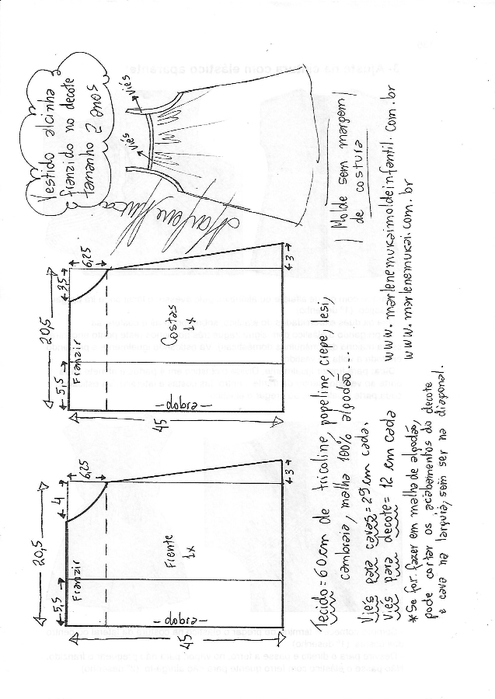 Vestido alcinha
franzido no decote
tamanho 2 anos
viés
viés
Marlene Mukai
Molde sem margem
de costura
20,5
5,5
3,5
6,25
Franzir
Costas
1x
dobra
45
3
20,5
5,5
4
6,25
Franzir
Frente
1x
dobra
45
3
Tecido = 60cm de tricoline, popeline, crepe, lesi,
cambraia, malha 100% algodão...
Viés para cavas = 29cm cada.
Viés para decote = 12 cm cada
* Se for fazer em malha de algodão,
pode cortar os acabamentos do decote
e cava na largura, sem ser na diagonal.
www.marlenemukaimoldeinfantil.com.br
www.marlenemukai.com.br